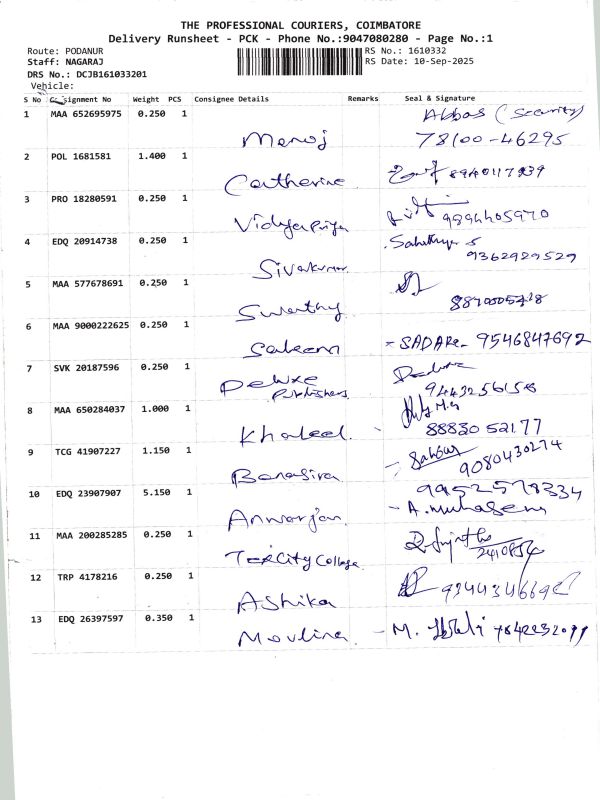 THE PROFESSIONAL COURIERS, COIMBATORE
Delivery Runsheet - PCK - Phone No.:9047080280 - Page No.:1
Route: PODANUR RS No.: 1610332
Staff: NAGARAJ RS Date: 10-Sep-2025
DRS No.: DCJB161033201
Vehicle:
S No Consignment No Weight PCS Consignee Details Remarks Seal & Signature
1 MAA 652695975 0.250 1 Abbas (Security)
Manoj 78100-46295
2 POL 1681581 1.400 1
Catherine
3 PRO 18280591 0.250 1
Vidyapriya 9894405970
4 EDQ 20914738 0.250 1
Sivakumar 9362929529
5 MAA 577678691 0.250 1
Swathy
6 MAA 9000222625 0.250 1
Saleem - SADARe- 9546847692
7 SVK 20187596 0.250 1
Deluxe
Publishers 9443256158
8 MAA 650284037 1.000 1
Khaleel 88830 52177
9 TCG 41907227 1.150 1
Banasira 9080430274
10 EDQ 23907907 5.150 1 9952578334
Anwarjan - A.Muhasena
11 MAA 200285285 0.250 1
TexCity College
12 TRP 4178216 0.250 1
Ashika
13 EDQ 26397597 0.350 1
Movlina - M.